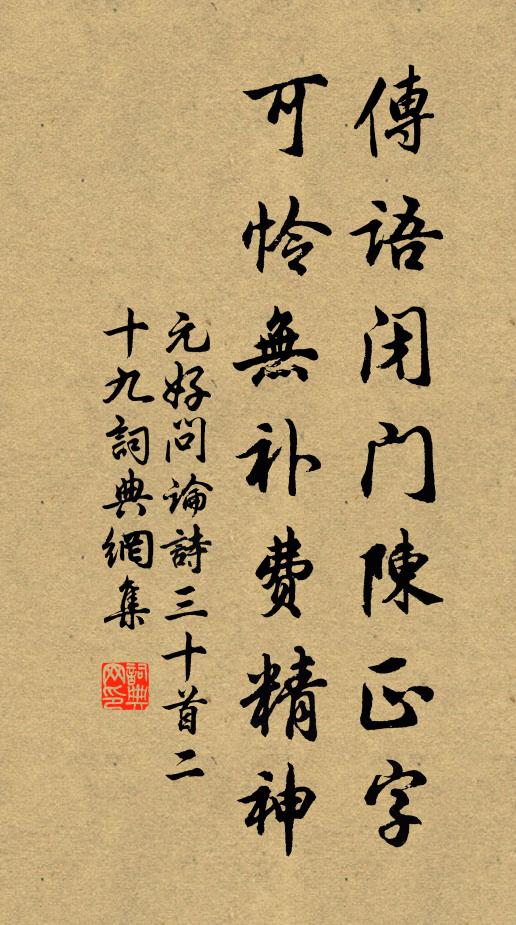 傳語闭门陳正字
可怜無补费精神
元好问論詩三十首二
十九詞典網集
詞典
网印